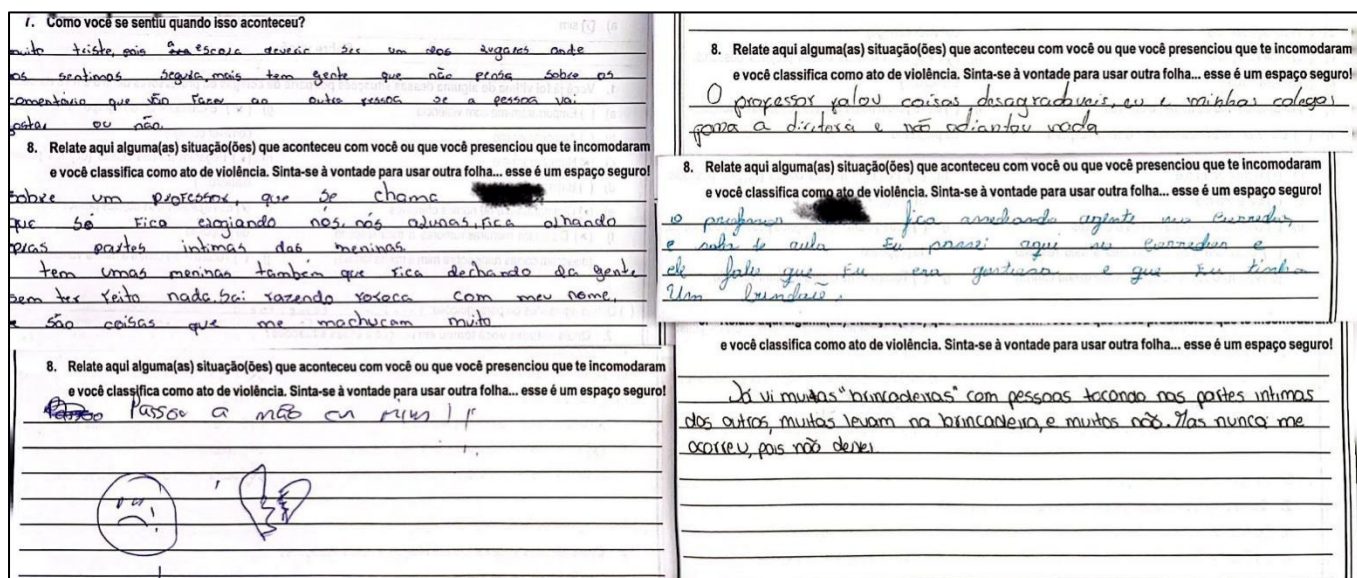 7. Como você se sentiu quando isso aconteceu?
muito triste, pois escola deveria ser um dos lugares onde
nos sentimos segura, mais tem gente que não pensa sobre os
comentário que vão fazer ao outra pessoa se a pessoa vai
gostar ou não.
8. Relate aqui alguma(as) situação(ões) que aconteceu com você ou que você presenciou que te incomodaram
e você classifica como ato de violência. Sinta-se à vontade para usar outra folha... esse é um espaço seguro!
sobre um professor, que se chama
que só fica nós, nós alunas, fica olhando
pras partes intimas das meninas.
tem umas meninas também que fica dechando da gente
sem ter feito nada. Sai fazendo fofoca com meu nome,
e são coisas que me machucam muito
8. Relate aqui alguma(as) situação(ões) que aconteceu com você ou que você presenciou que te incomodaram
e você classifica como ato de violência. Sinta-se à vontade para usar outra folha... esse é um espaço seguro!
Passou a mão en mim
8. Relate aqui alguma(as) situação(ões) que aconteceu com você ou que você presenciou que te incomodaram
e você classifica como ato de violência. Sinta-se à vontade para usar outra folha... esse é um espaço seguro!
O professor falou coisas desagradaveis, eu e minhas colegas
a diretora e não adiantou nada
8. Relate aqui alguma(as) situação(ões) que aconteceu com você ou que você presenciou que te incomodaram
e você classifica como ato de violência. Sinta-se à vontade para usar outra folha... esse é um espaço seguro!
o professor fica agente no corredor
e sala de aula Eu passei aqui no corredor e
ele falou que Eu era gostosa e que Eu tinha
Um
e você classifica como ato de violência. Sinta-se à vontade para usar outra folha... esse é um espaço seguro!
Já vi muitas "brincadeiras" com pessoas tocando nas partes intimas
dos outros, muitas levam na brincadeira, e muitos não. Mas nunca me
ocorreu, pois não deixei.